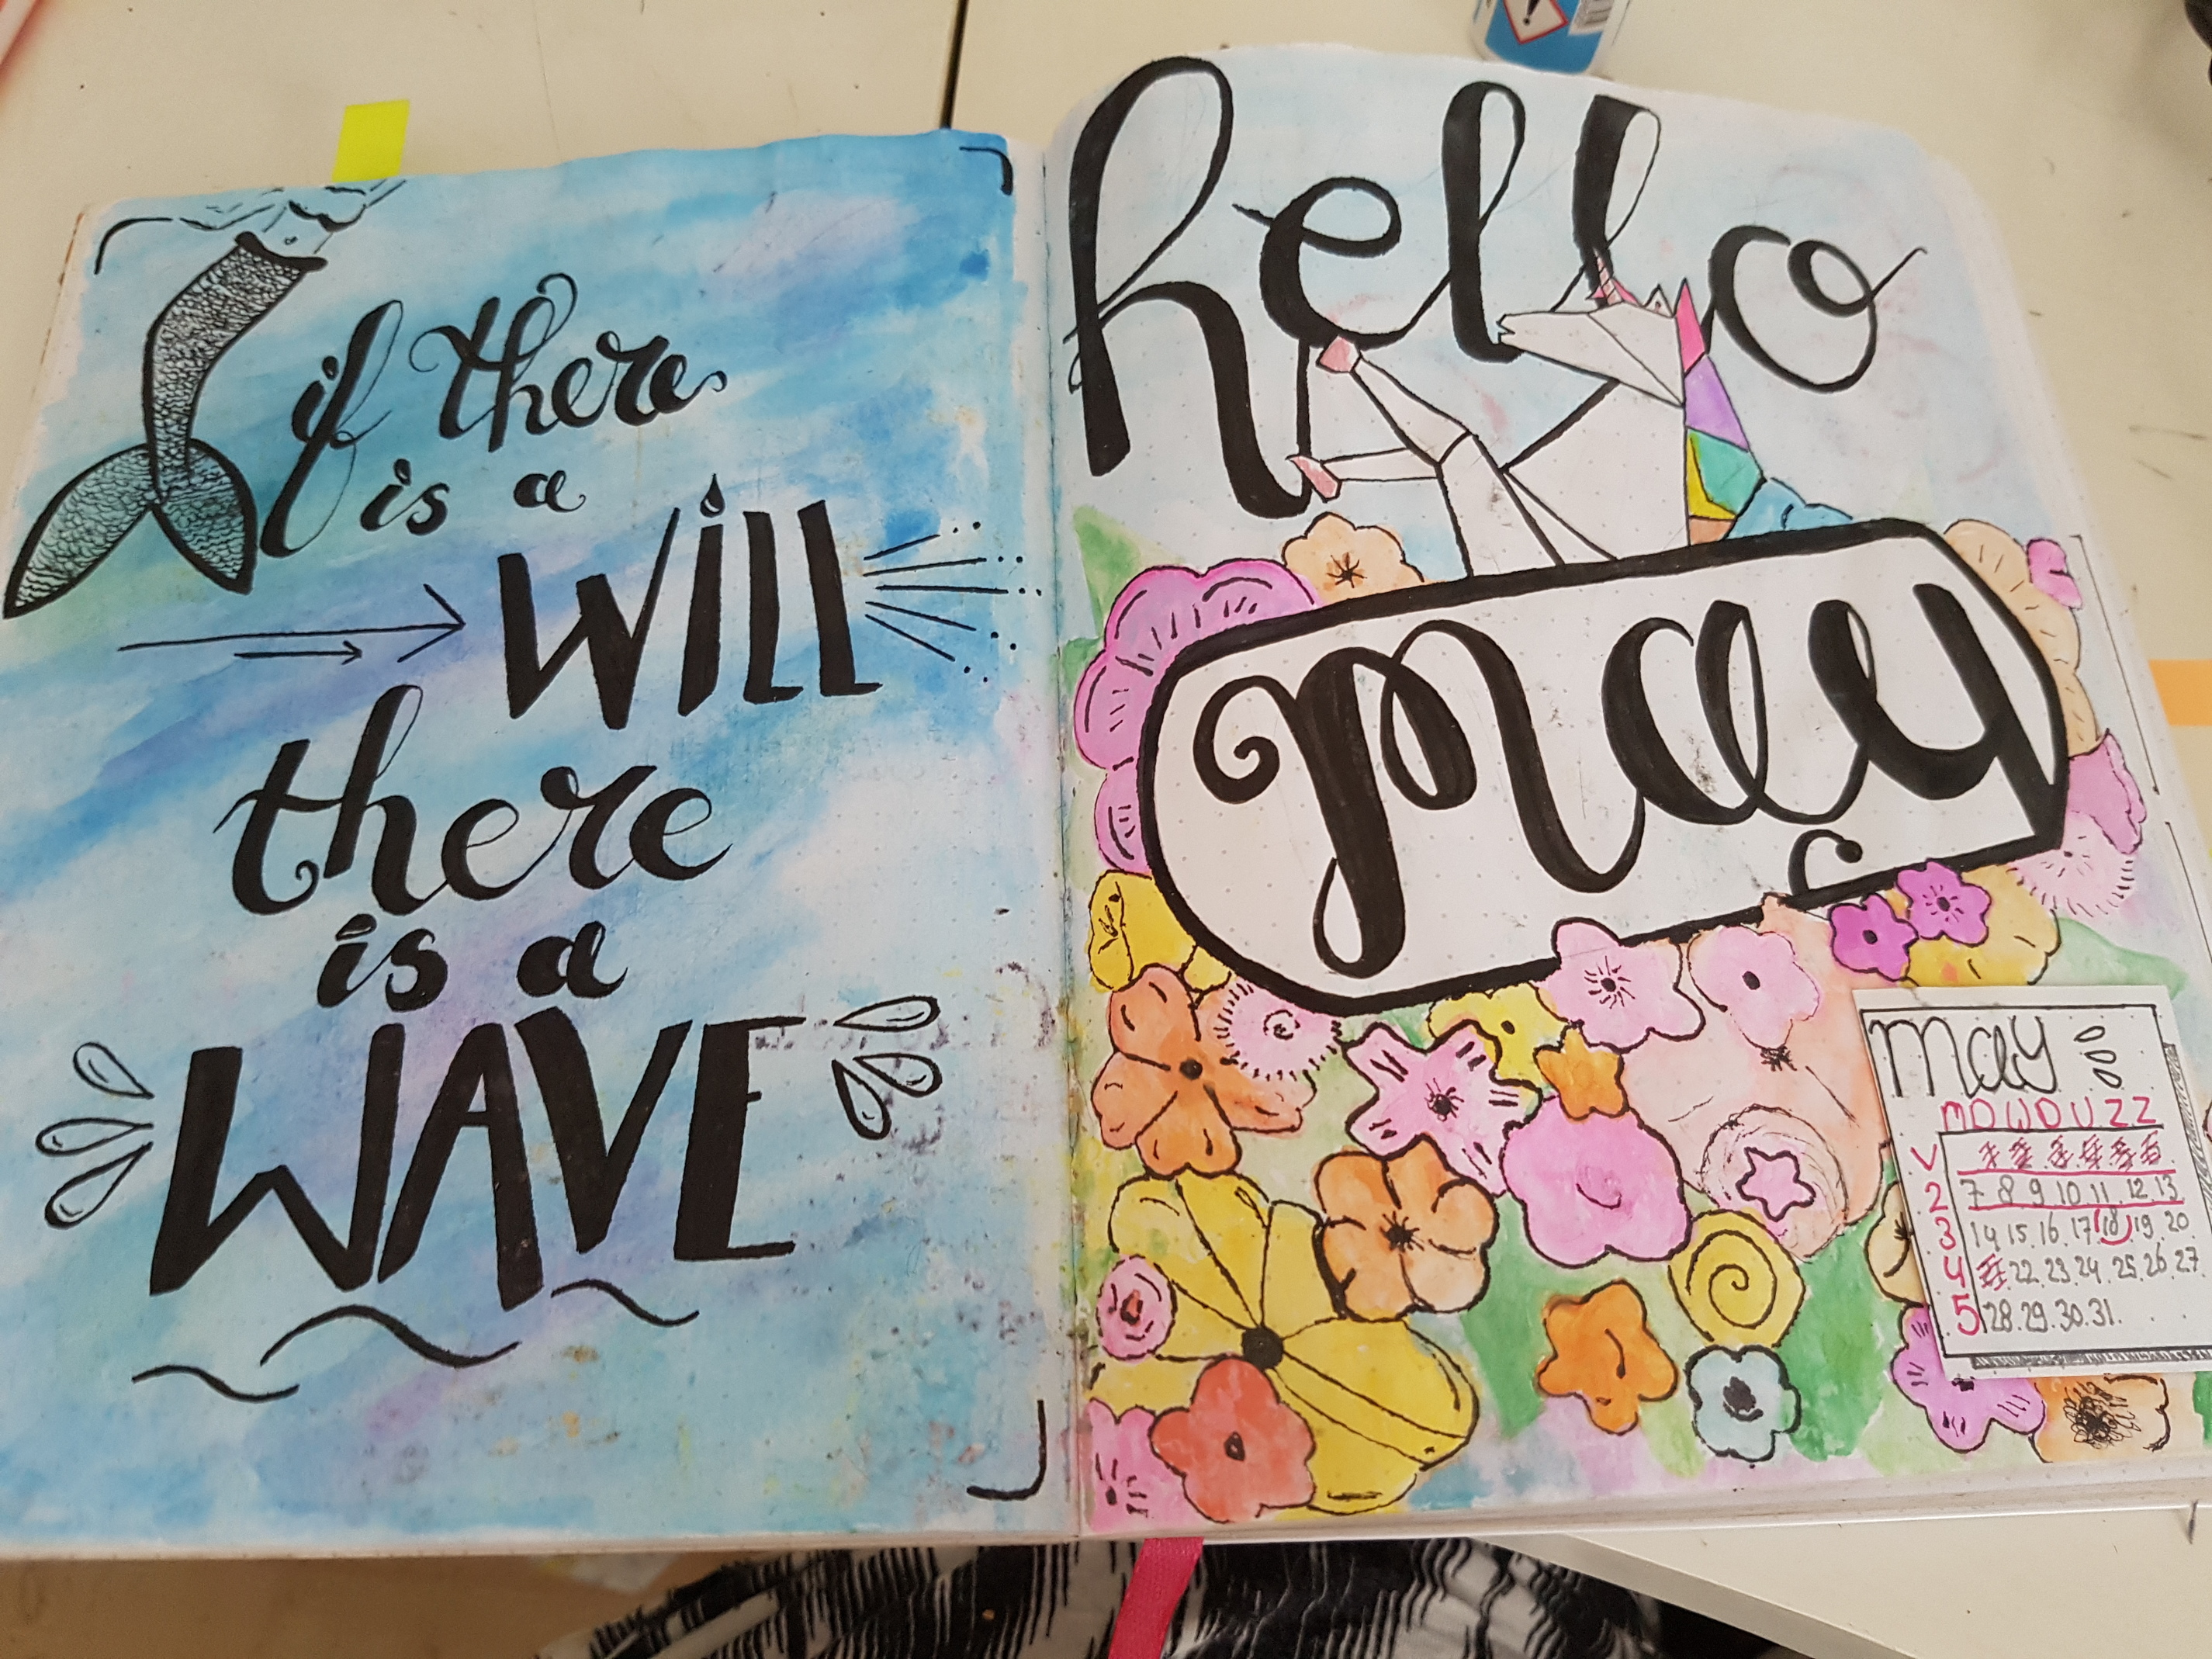 if there
is a
WiLL
there
is a
WAVE
hello
may
May
M D W D V Z Z
V
2 7 8 9 10 11 12 13
3 14 15 16 17 18 19 20
4 22 23 24 25 26 27
5 28 29 30 31